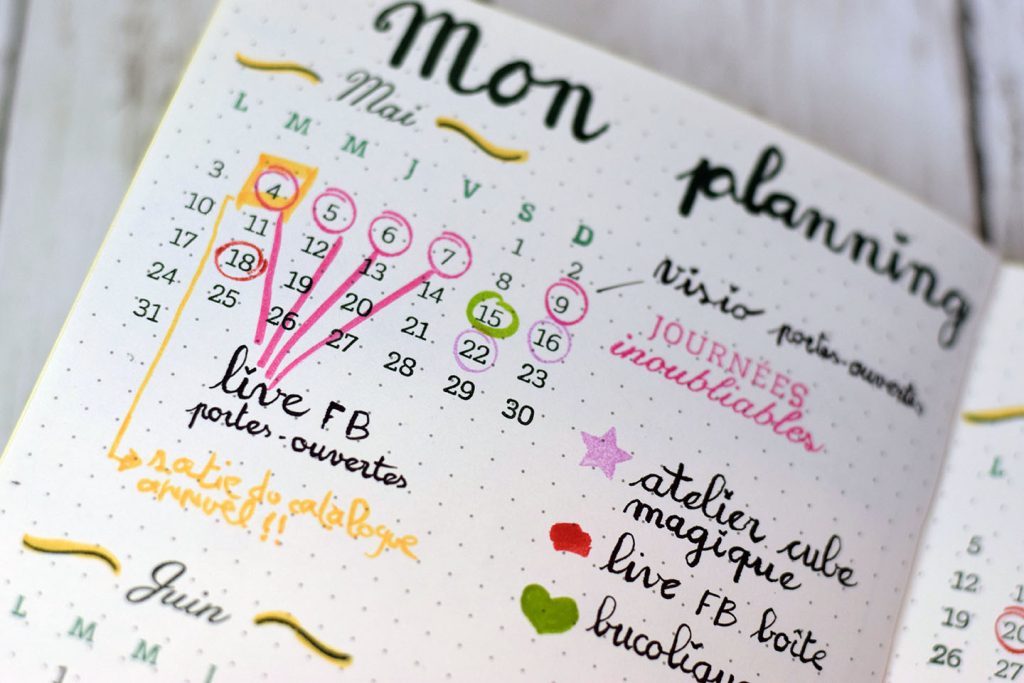 Mon planning
Mai
L M M J V S D
1 2
3 4 5 6 7 8 9
10 11 12 13 14 15 16
17 18 19 20 21 22 23
24 25 26 27 28 29 30
31
visio portes-ouvertes
JOURNÉES
inoubliables
live FB
portes-ouvertes
sortie du catalogue
annuel !!
atelier cube
magique
live FB boîte
Juin
L M M J
1
L
5
12
19 20
26 27